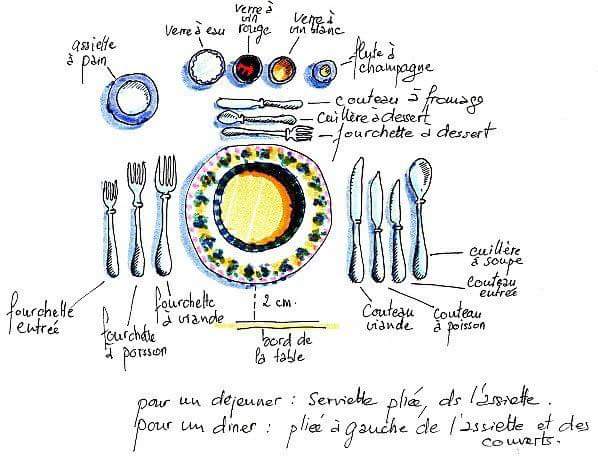 assiette
à pain
verre à eau
verre à
vin
rouge
verre à
vin blanc
flute à
champagne
couteau à fromage
cuillère à dessert
fourchette à dessert
fourchette
entrée
fourchette
à poisson
fourchette
à viande
2 cm.
bord de
la table
couteau
viande
couteau
à poisson
couteau
entrée
cuillère
à soupe
pour un déjeuner : Serviette pliée, ds l'assiette.
pour un diner : pliée à gauche de l'assiette et des
couverts.